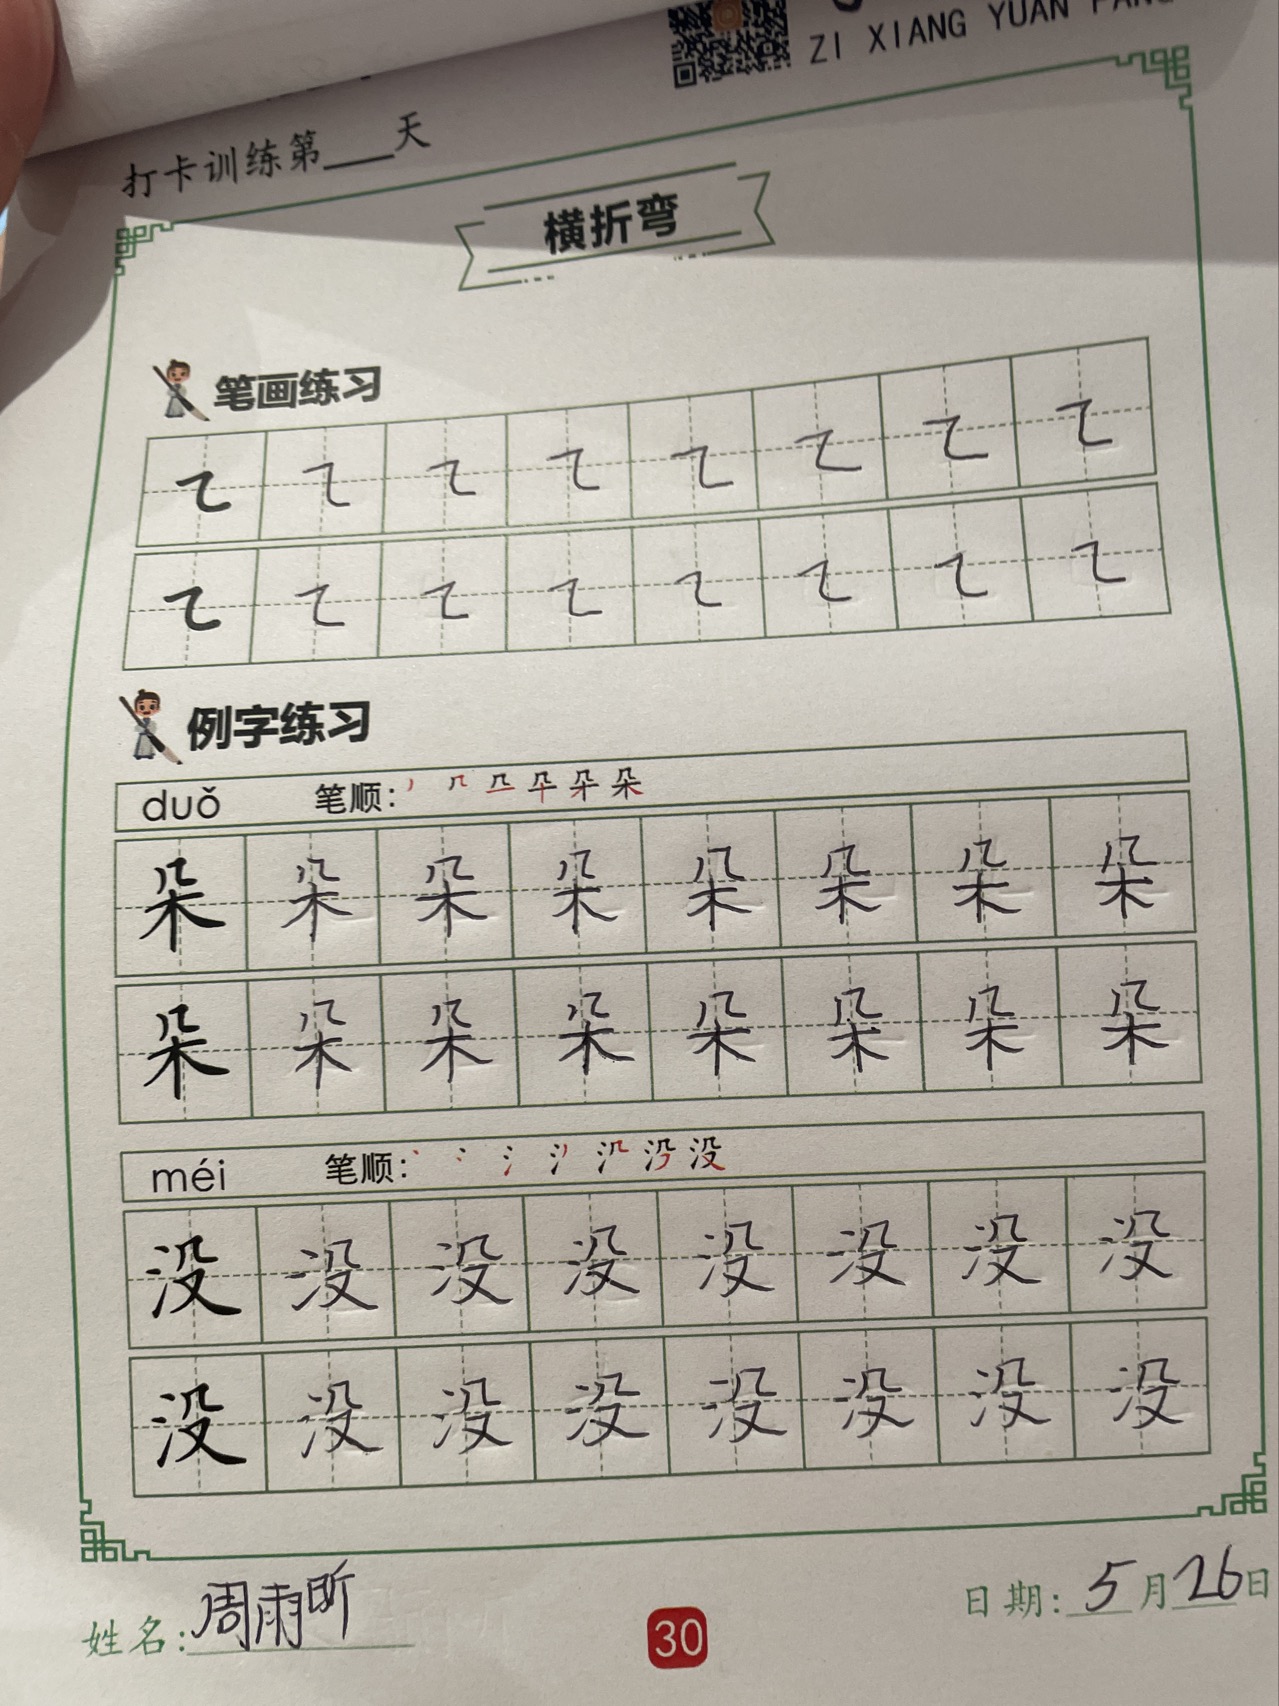 ZI XIANG YUAN
打卡训练第___天
横折弯
笔画练习
㇍ ㇍ ㇍ ㇍ ㇍ ㇍ ㇍ ㇍
㇍ ㇍ ㇍ ㇍ ㇍ ㇍ ㇍ ㇍
例字练习
duǒ 笔顺:
朵 朵 朵 朵 朵 朵 朵 朵
朵 朵 朵 朵 朵 朵 朵 朵
méi 笔顺:
没 没 没 没 没 没 没 没
没 没 没 没 没 没 没 没
姓名:周雨昕
日期:5月26日
30